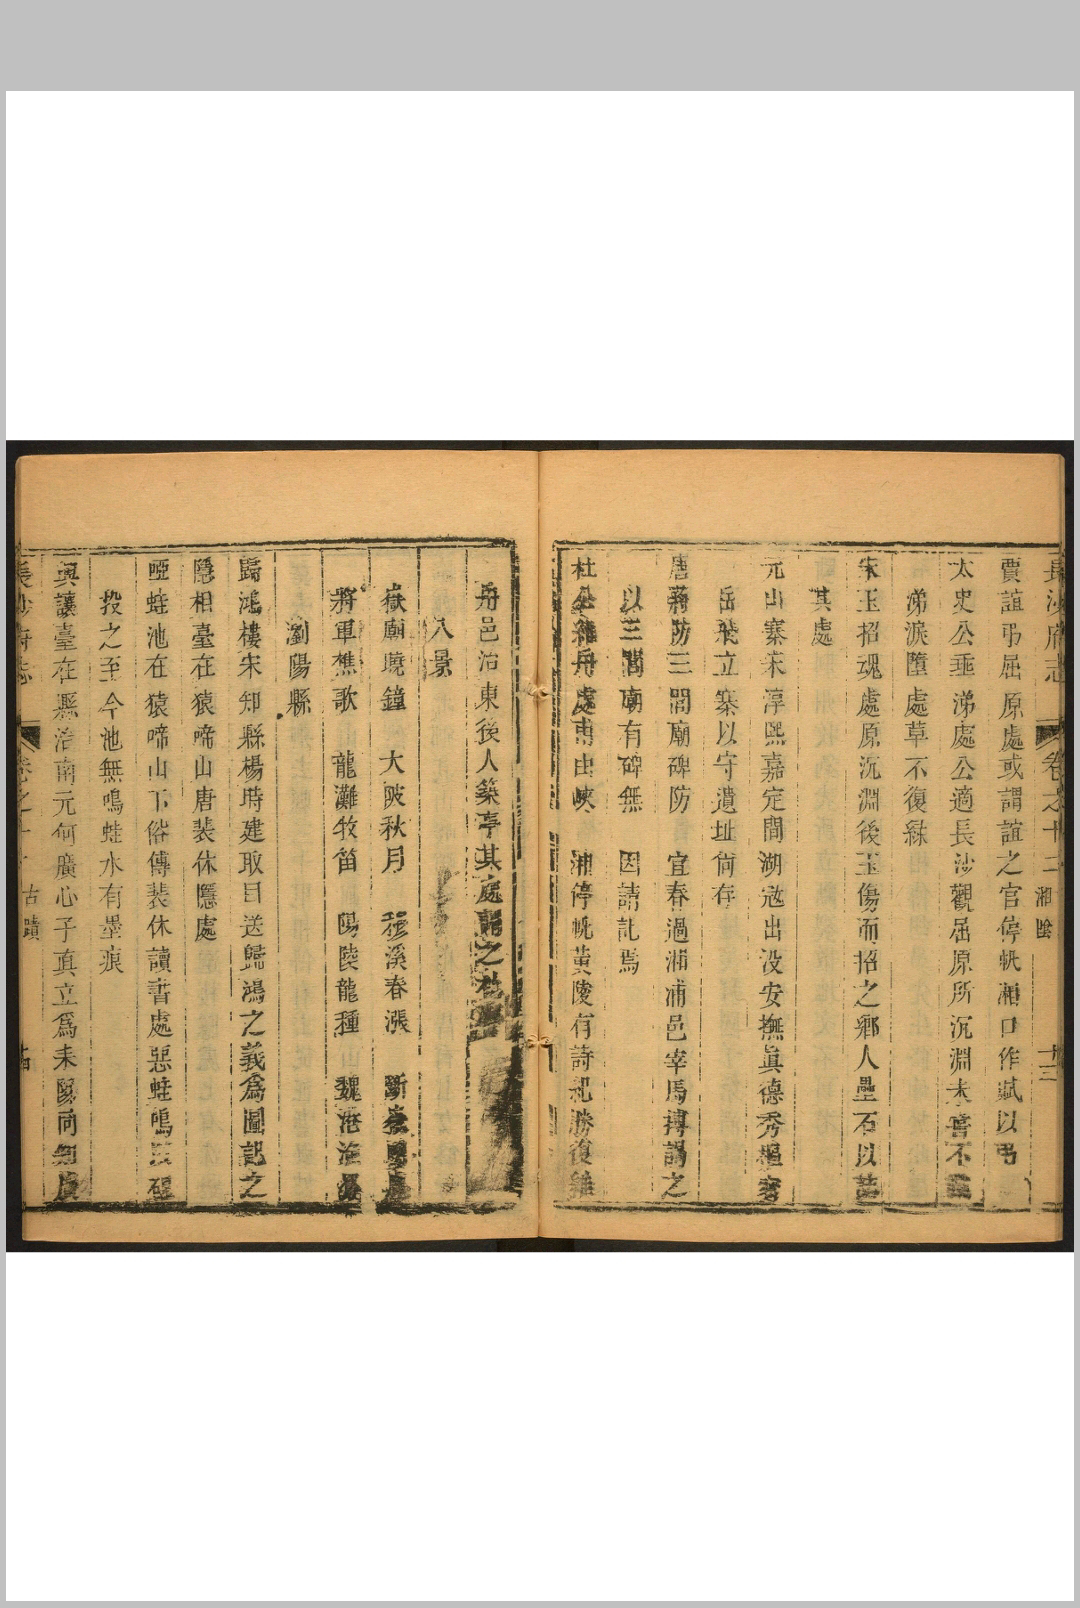 長沙府志 卷之十二 湘陰 十三
賈誼弔屈原處或謂誼之官停帆湘口作賦以弔
太史公垂涕處公適長沙觀屈原所沉淵未嘗不
涕淚墮處草不復綠
宋玉招魂處原沉淵後玉傷而招之鄉人壘石以誌
其處
元山寨宋淳熙嘉定間湖寇出没安撫眞德秀
岳飛立寨以守遺址尚存
唐蔣防三閭廟碑防 宜春過湘浦邑宰馬摶謂之
以三閭廟有碑無 因請記焉
杜公維舟處甫由峽 湘停帆黄陵有詩紀勝復維
舟邑治東後人築亭其處
八景
嶽廟曉鐘 大陂秋月 溪春漲 斷
將軍樵歌 龍灘牧笛 陽陸龍種 魏港漁
瀏陽縣
歸鴻樓宋知縣楊時建取目送歸鴻之義爲圖記之
隱相臺在猿啼山唐裴休隱處
啞蛙池在猿啼山下俗傳裴休讀書處惡蛙鳴
投之至今池無鳴蛙水有墨痕
興讓臺在縣治南元何廣心子真立爲耒陽同知
長沙府志 卷之十 古蹟